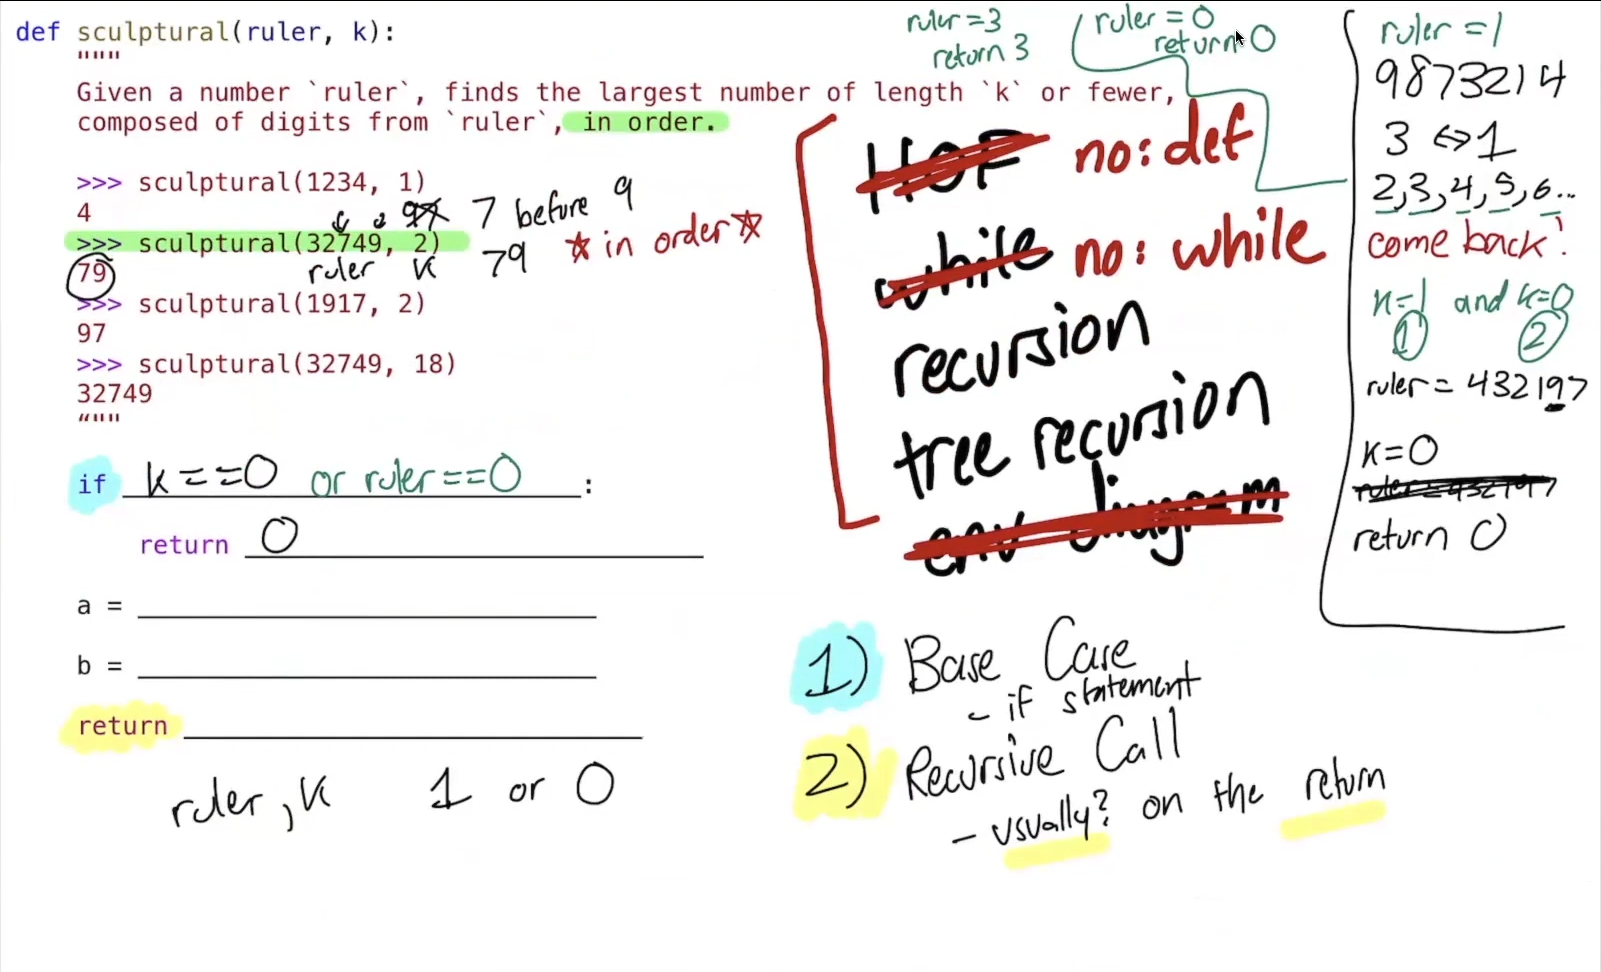 def sculptural(ruler, k):
"""
Given a number `ruler`, finds the largest number of length `k` or fewer,
composed of digits from `ruler`, in order.
>>> sculptural(1234, 1)
4
>>> sculptural(32749, 2)
79
>>> sculptural(1917, 2)
97
>>> sculptural(32749, 18)
32749
“"""
if k==0 or ruler==0 :
return 0
a =
b =
return
ruler, k 1 or 0
97 7 before 9
ruler k 79 ☆ in order ☆
ruler=3
return 3
ruler=0
return 0
HOF no: def
while no: while
recursion
tree recursion
env diagram
1) Base Case
- if statement
2) Recursive Call
- usually? on the return
ruler=1
9873214
3 ⇔ 1
2,3,4,5,6...
come back!
k=1 and k=0
1 2
ruler = 432197
k=0
ruler=432197
return 0